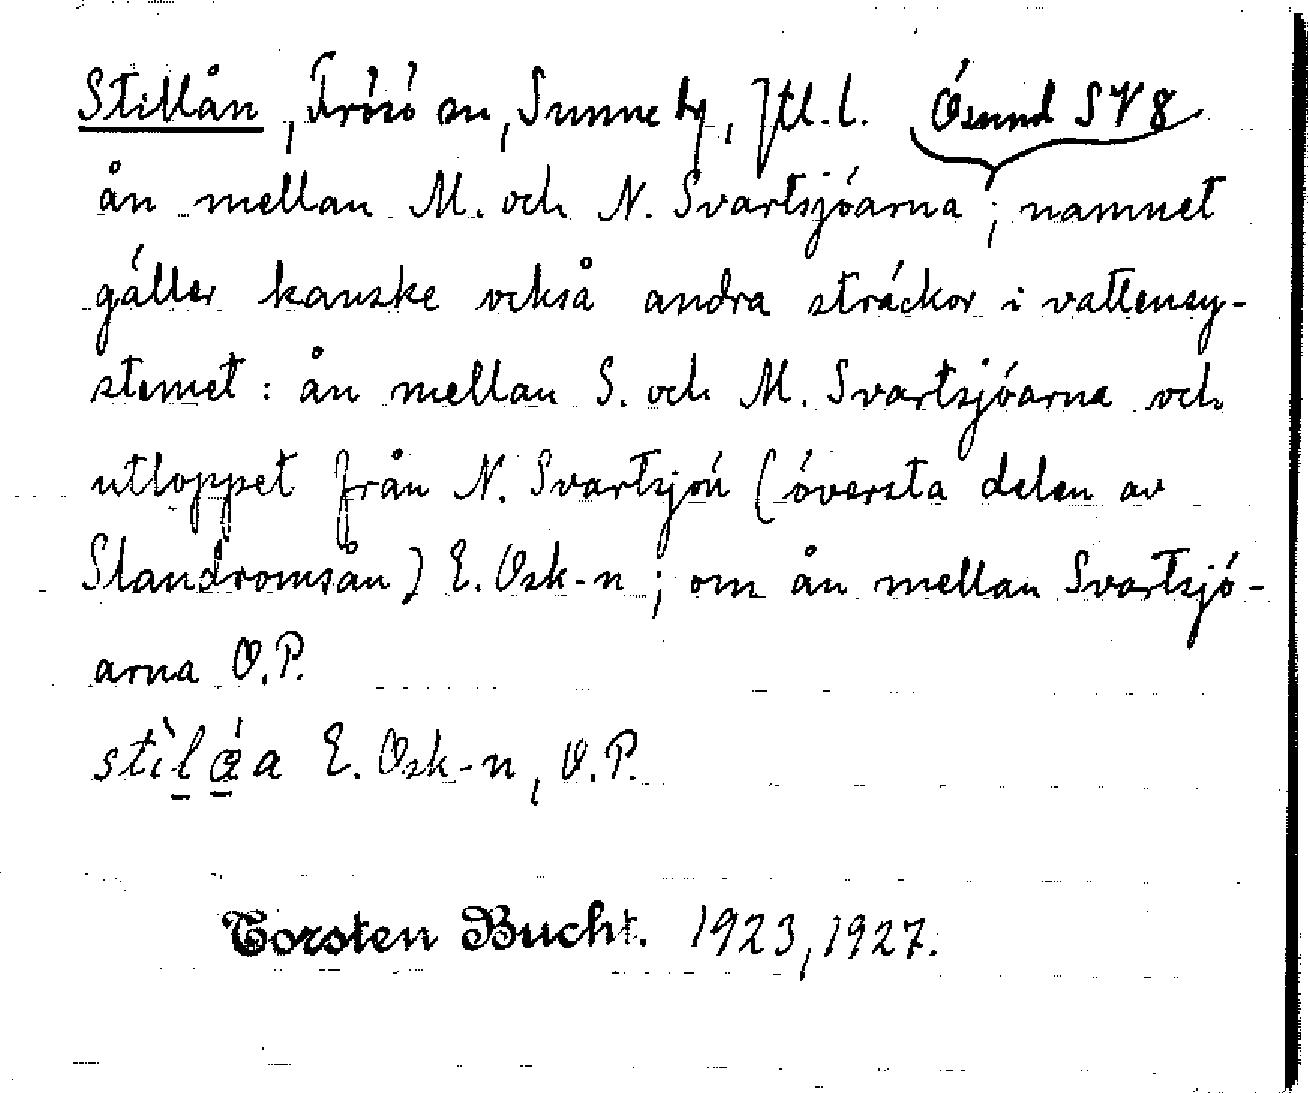 Stillån, Frösö sn, Sunne tg, Jtl. l. Ösund SV 8
ån mellan M. och N. Svartsjöarna; namnet
gäller kanske också andra sträckor i vattensy-
stemet: ån mellan S. och M. Svartsjöarna och
utloppet från N. Svartsjön (översta delen av
Slandromsån) E. Osk-n; om ån mellan Svartsjö-
arna O.P.
E. Osk-n, O.P.
Torsten Bucht. 1923, 1927.